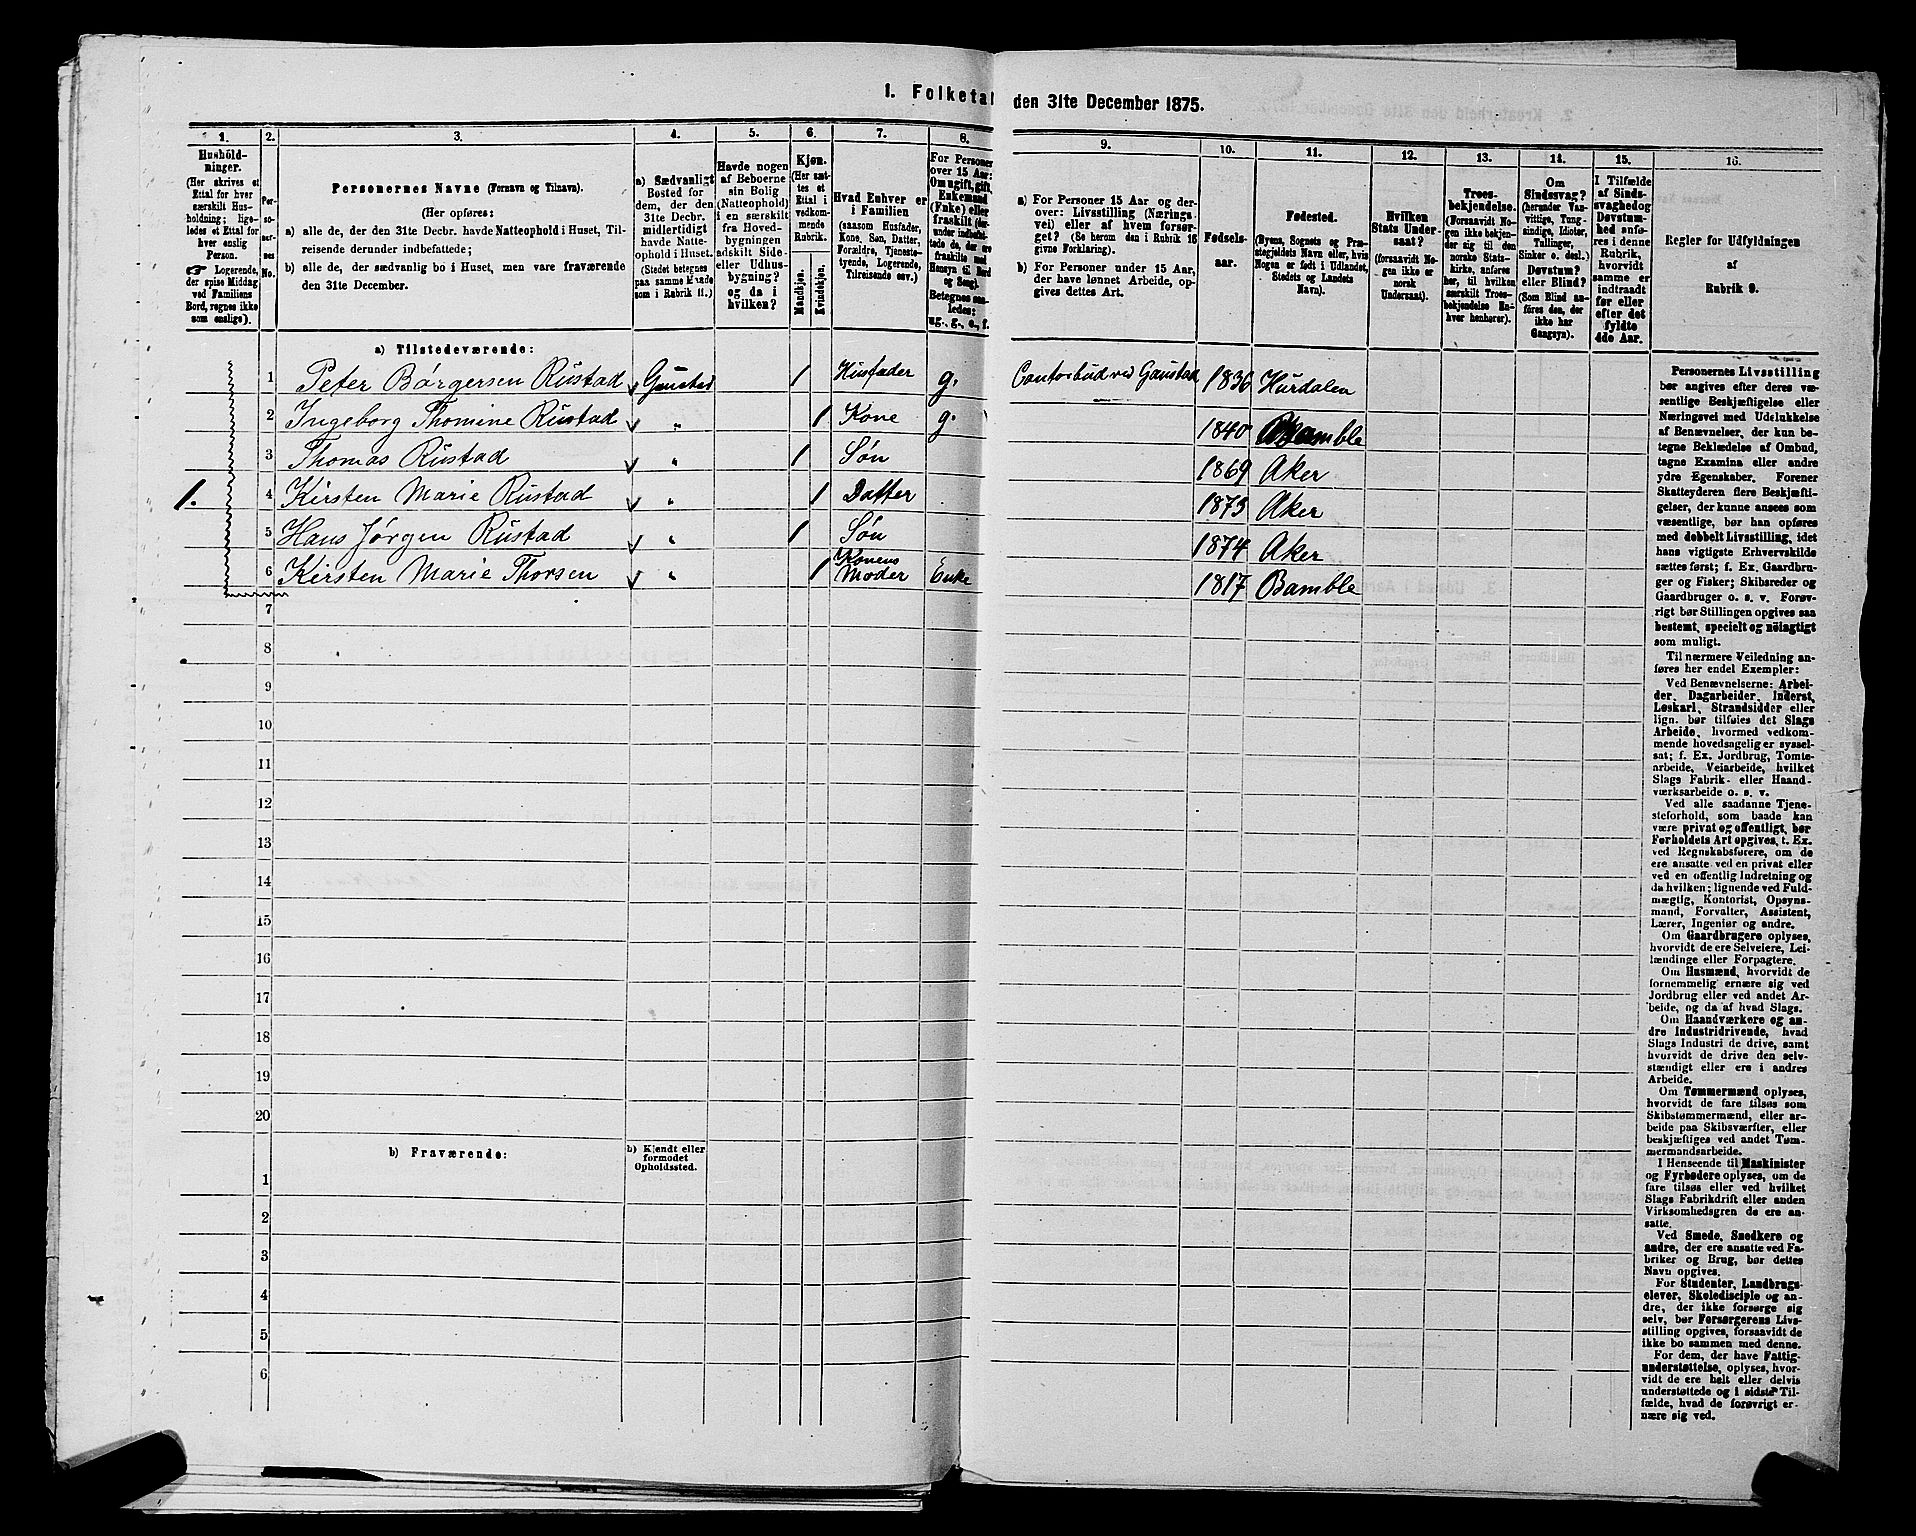 1. Folketal den 31te December 1875.
1. 2. 3. 4. 5. 6. 7. 8. 9. 10. 11. 12. 13. 14. 15. 16.
Hushold-
ninger.
(Her skrives et
Ettal for hver
særskilt Hus-
holdning; lige-
ledes et Ettal for
hver enslig
Person.
☛ Logerende,
der spise Middag
ved Familiens
Bord, regnes ikke
som enslige).
Per-
so-
ner-
nes
No.
Personernes Navne (Fornavn og Tilnavn).
(Her opføres:
a) alle de, der den 31te Decbr. havde Natteophold i Huset, Til-
reisende derunder indbefattede;
b) alle de, der sædvanlig bo i Huset, men vare fraværende
den 31te December.
a) Sædvanligt
Bosted for
dem, der den
31te Decbr.
midlertidigt
havde Natte-
ophold i Huset.
(Stedet betegnes
paa samme Maade
som i Rubrik 11.)
Havde nogen
af Beboerne
sin Bolig
(Natteophold)
i en særskilt
fra Hoved-
bygningen
adskilt Side-
eller Udhus-
bygning?
og da i
hvilken?
Kjøn.
(Her sæt-
tes et
Ettal i
vedkom-
mende
Rubrik.
Mandkjøn.
Kvindekjøn.
Hvad Enhver er
i Familien
(saasom Husfader,
Kone, Søn, Datter,
Forældre, Tjeneste-
tyende, Logerende,
Tilreisende osv.)
For Personer
over 15 Aar:
Om ugift, gift,
Enkemand
(Enke) eller
fraskilt (der-
under indbefat-
tede de, der ere
fraskilte med
Hensyn til Bord
og Seng).
Betegnes saa-
ledes:
ug., g., e., f.
a) For Personer 15 Aar og der-
over: Livsstilling (Nærings-
vei) eller af hvem forsør-
get? (Se herom den i Rubrik 16
givne Forklaring).
b) For Personer under 15 Aar,
der have lønnet Arbeide, op-
gives dettes Art.
Fødsels-
aar.
Fødested.
(Byens, Sognets og Præ-
stegjeldets Navn eller, hvis
Nogen er født i Udlandet,
Stedets og Landets
Navn).
Hvilken
Stats Under-
saat?
(forsaavidt No-
gen ikke er
norsk
Undersaat).
Troes-
bekjendelse.
(Forsaavidt No-
gen ikke bekjen-
der sig til den
norske Stats-
kirke, anføres
her, til hvilken
særskilt Troes-
bekjendelse En-
hver henhører).
Om
Sindssvag?
(herunder Van-
vittige, Tung-
sindige, Idioter,
Tullinger,
Sinker o. desl.)
Døvstum?
eller Blind?
(Som Blind an-
føres den, der
ikke har
Gangsyn).
I Tilfælde
af Sinds-
svaghed og
Døvstum-
hed anfø-
res i denne
Rubrik,
hvorvidt
samme er
indtraadt
før eller
efter det
fyldte
4de Aar.
Regler for Udfyldningen
af
Rubrik 9.
a) Tilstedeværende:
1 Peter Børgersen Rustad Gaustad 1 Husfader g. Contorbud ved Gaustad 1836 Hurdalen
2 Ingeborg Thomine Rustad " 1 Kone g. 1840 Bamble
3 Thomas Rustad " 1 Søn 1869 Aker
1. 4 Kirsten Marie Rustad " 1 Datter 1873 Aker
5 Hans Jørgen Rustad " 1 Søn 1874 Aker
6 Kirsten Marie Thorsen " 1 Konens Moder Enke 1817 Bamble
7
8
9
10
11
12
13
14
15
16
17
18
19
20
b) Fraværende:
b) Kjendt eller
formodet
Opholdssted.
1
2
3
4
5
6
Personernes Livsstilling
bør angives efter deres væ-
sentlige Beskjæftigelse eller
Næringsvei med Udelukkelse
af Benævnelser, der kun be-
tegne Beklædelse af Ombud,
tagne Examina eller andre
ydre Egenskaber. Forener
Skatteyderen flere Beskjæfti-
gelser, der kunne ansees som
væsentlige, bør han opføres
med dobbelt Livsstilling, idet
hans vigtigste Erhvervskilde
sættes først; f. Ex. Gaardbru-
ger og Fisker; Skibsreder og
Gaardbruger o. s. v. Forøv-
rigt bør Stillingen opgives saa
bestemt, specielt og nøiagtigt
som muligt.
Til nærmere Veiledning an-
føres her endel Exempler:
Ved Benævnelserne: Arbei-
der, Dagarbeider, Inderst,
Løskarl, Strandsidder eller
lign. bør tilføies det Slags
Arbeide, hvormed vedkom-
mende hovedsagelig er syssel-
sat; f. Ex. Jordbrug, Tomte-
arbeide, Veiarbeide, hvilket
Slags Fabrik- eller Haand-
værksarbeide o. s. v.
Ved alle saadanne Tjene-
steforhold, som baade kan
være privat og offentligt, bør
Forholdets Art opgives, t. Ex.
ved Regnskabsførere, om de
ere ansatte ved en privat eller
ved en offentlig Indretning og
da hvilken; lignende ved Fuld-
mægtig, Kontorist, Opsyns-
mand, Forvalter, Assistent,
Lærer, Ingeniør og andre.
Om Gaardbrugere oplyses,
hvorvidt de ere Selveiere, Lei-
lændinge eller Forpagtere.
Om Husmænd, hvorvidt de
fornemmelig ernære sig ved
Jordbrug eller ved andet Ar-
beide, og da af hvad Slags.
Om Haandværkere og an-
dre Industridrivende, hvad
Slags Industri de drive, samt
hvorvidt de drive den selv-
stændigt eller ere i andres
Arbeide.
Om Tømmermænd oplyses,
hvorvidt de fare tilsøs som
Skibstømmermænd, eller ar-
beide paa Skibsværfter, eller
beskjæftiges ved andet Tøm-
mermandsarbeide.
I Henseende til Maskinister
og Fyrbødere oplyses, om de
fare tilsøs eller ved hvilket
Slags Fabrikdrift eller anden
Virksomhedsgren de ere an-
satte.
Ved Smede, Snedkere og
andre, der ere ansatte ved Fa-
briker og Brug, bør dettes
Navn opgives.
For Studenter, Landbrugs-
elever, Skoledisciple og an-
dre, der ikke forsørge sig
selv, bør Forsørgerens Livs-
stilling opgives, forsaavidt de
ikke bo sammen med denne.
For dem, der have Fattig-
understøttelse, oplyses, hvor-
vidt de ere helt eller delvis
understøttede og i sidste Til-
fælde, hvad de forøvrigt er-
nære sig ved.